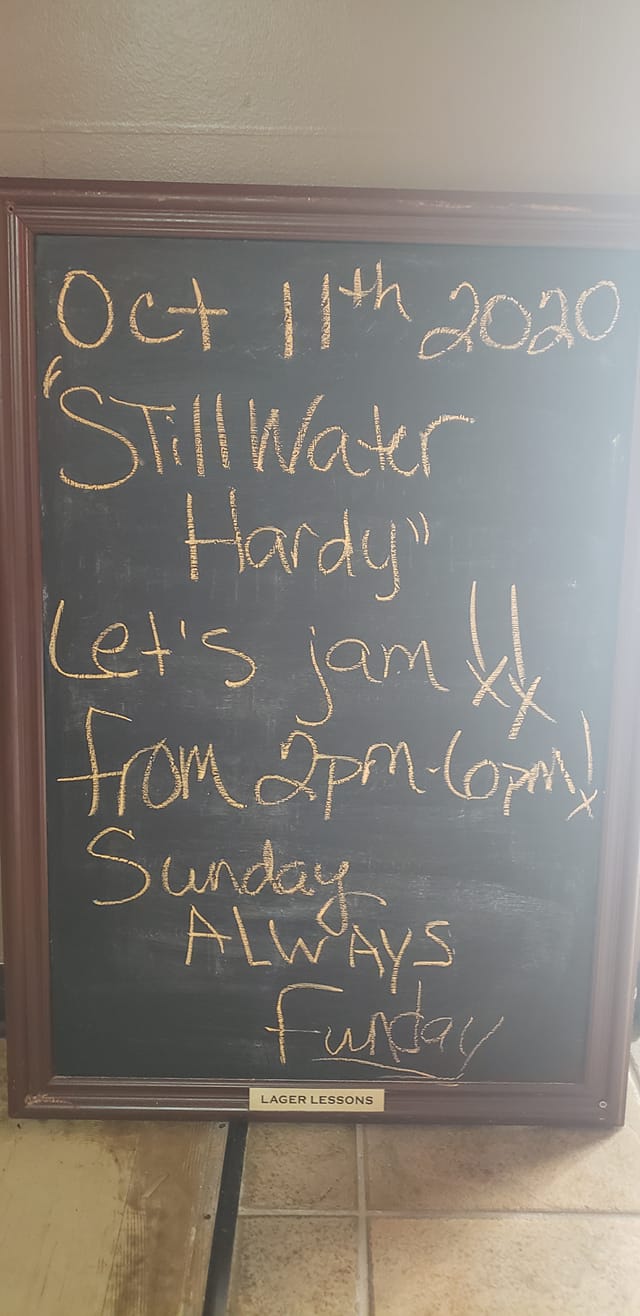 Oct 11th 2020
"StillWater
Hardy"
Let's jam!!
From 2pm-6pm!
Sunday
ALWAYS
Funday
LAGER LESSONS